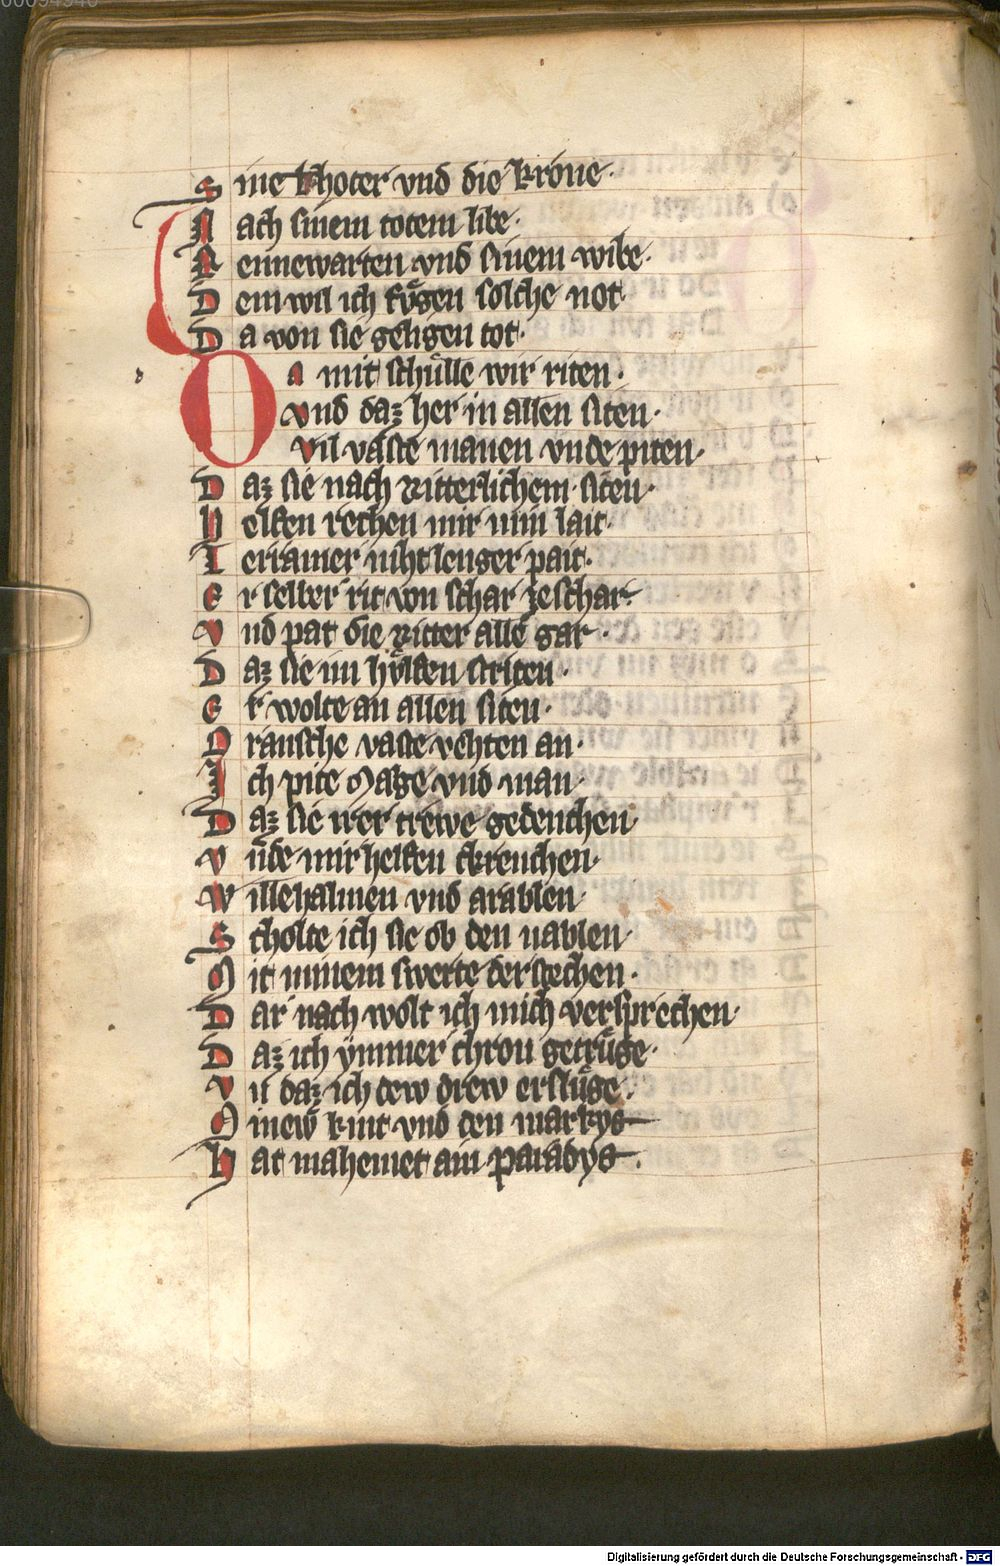 S ine thoter vnd die krone·
N ach sinem totem libe·
R ennewarten vnd sinem wibe·
D em wil ich fuͤgen solche not·
D a von sie geligen tot·
D a mit schulle wir riten·
vnd daz her in allen siten·
vil vaste manen vnde piten·
D az sie nach ritterlichem siten·
h elfen rechen mir min lait·
T erramer niht lenger pait·
E r selber rit von schar ze schar·
V nd pat die ritter alle gar·
D az sie im hulfen striten·
E r wolte an allen siten·
D rausche vaste vehten an·
I ch pite mage vnd man·
D az sie irer trewe gedenchen·
V nde mir helfen chrenchen·
W illehalmen vnd arablen·
S cholte ich sie ob den nablen·
M it minem swerte derstechen·
D ar nach wolt ich mich versprechen·
D az ich ymmer chron getruͤge·
V n daz ich dew drew ersluͤge·
M inew kint vnd den markys
h at mahemet ain paradys·
Digitalisierung gefördert durch die Deutsche Forschungsgemeinschaft - DFG